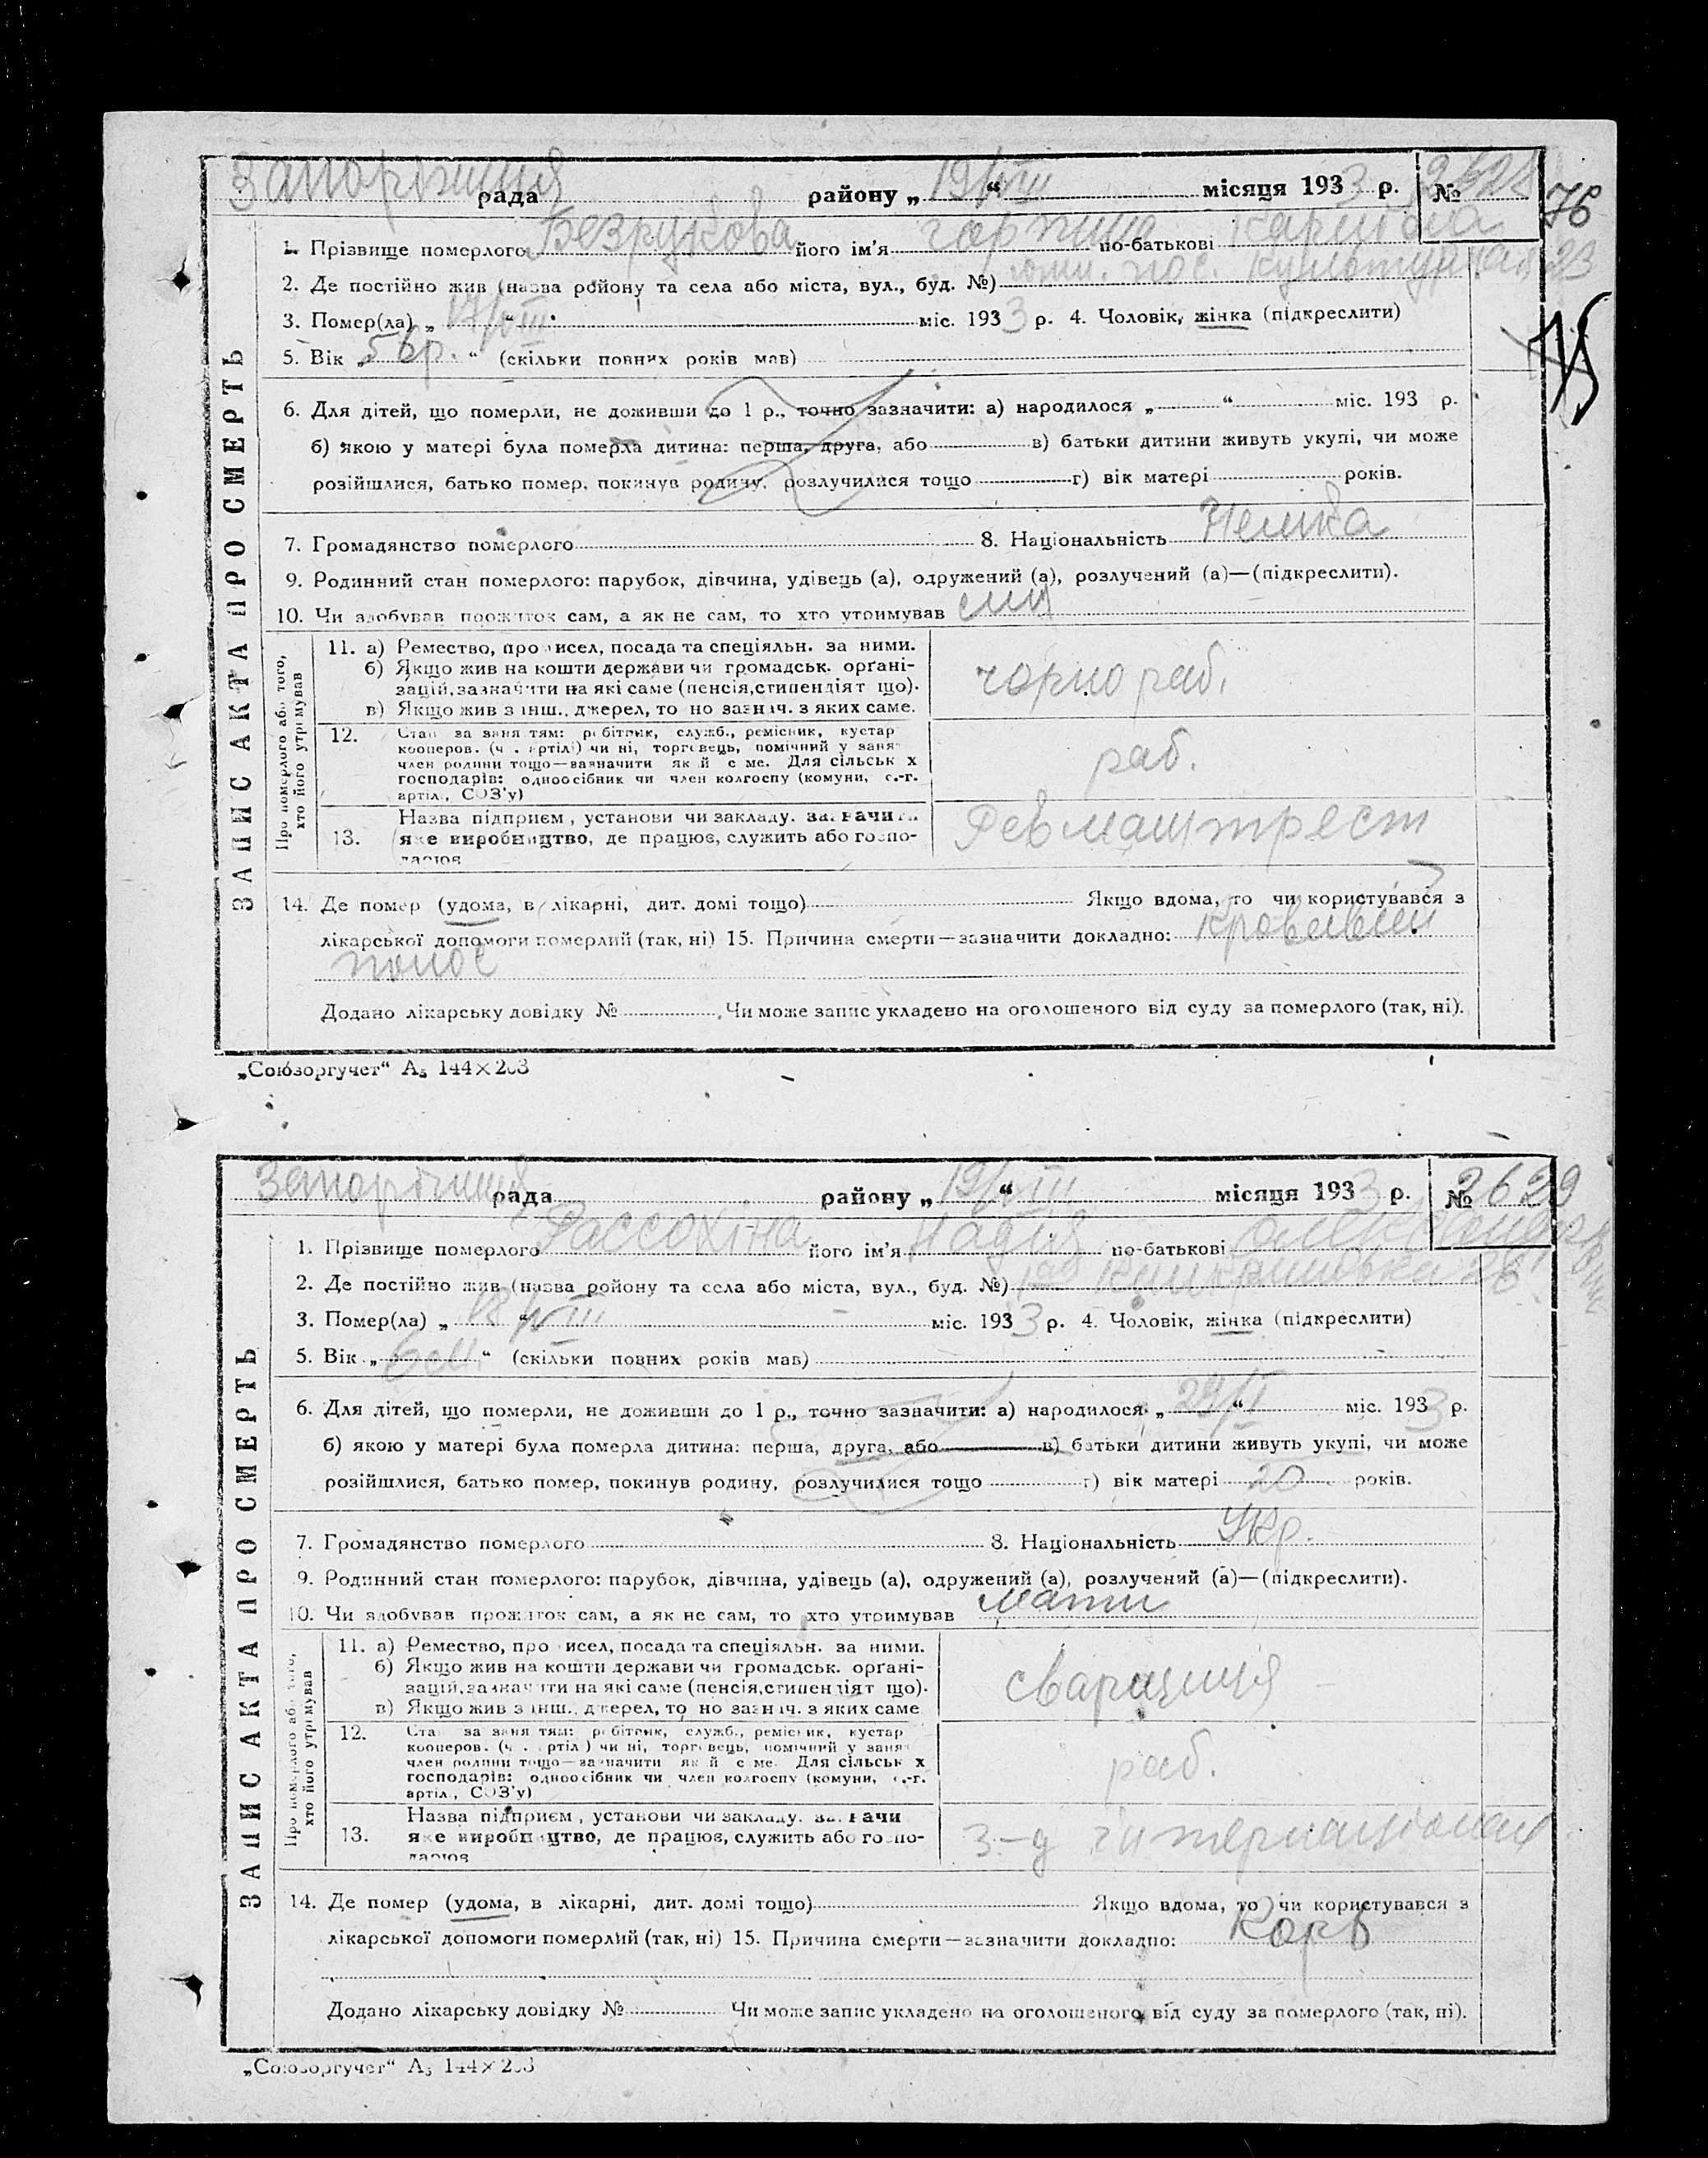 Запоріжжя рада району „ 19/VIII “ місяця 1933 р. № 2628
76
1. Прізвище померлого Безрукова його ім'я по-батькові
2. Де постійно жив (назва району та села або міста, вул., буд. №) пос. 23
3. Помер(ла) „ 17/VIII “ міс. 1933 р. 4. Чоловік, жінка (підкреслити)
5. Вік „ 56р. “ (скільки повних років мав)
75
6. Для дітей, що померли, не доживши до 1 р., точно зазначити: а) народилося „ “ міс. 193 р.
б) якою у матері була померла дитина: перша, друга, або в) батьки дитини живуть укупі, чи може
розійшлися, батько помер, покинув родину, розлучилися тощо г) вік матері років.
7. Громадянство померлого 8. Національність Немка
9. Родинний стан померлого: парубок, дівчина, удівець (а), одружений (а), розлучений (а)—(підкреслити).
10. Чи здобував прожиток сам, а як не сам, то хто утримував син
Про померлого або того, хто його утримував
11. а) Ремество, про исел, посада та спеціяльн. за ними.
б) Якщо жив на кошти держави чи громадськ. орґані-
зацій, зазначити на які саме (пенсія, стипендіят що).
в) Якщо жив з інш. джерел, то но зазнач. з яких саме.
чорнораб.
12. Стан за заняттям: робітник, служб., ремісник, кустар
кооперов. (ч . артілі) чи ні, торговець, помічний у занят
член родини тощо—зазначити як й с ме. Для сільськ х
господарів: одноосібник чи член колгоспу (комуни, с.-г.
артілі, СОЗ'у)
раб.
13. Назва підприєм , установи чи закладу. зазначити
яке виробництво, де працює, служить або госпо-
дарює
Ревмаштрест
14. Де помер (удома, в лікарні, дит. домі тощо) Якщо вдома, то чи користувався з
лікарської допомоги померлий (так, ні) 15. Причина смерти—зазначити докладно: кровавый
понос
Додано лікарську довідку № Чи може запис укладено на оголошеного від суду за померлого (так, ні).
ЗАПИС АКТА ПРО СМЕРТЬ
„Союзоргучет“ А₅ 144×203
Запоріжжя рада району „ 19/VIII “ місяця 1933 р. № 2629
1. Прізвище померлого Рассохіна його ім'я Надія по-батькові Олександровна
2. Де постійно жив (назва району та села або міста, вул., буд. №)
3. Помер(ла) „ 18/VIII “ міс. 1933 р. 4. Чоловік, жінка (підкреслити)
5. Вік „ 6 м. “ (скільки повних років мав)
6. Для дітей, що померли, не доживши до 1 р., точно зазначити: а) народилося „ 29/I “ міс. 1933 р.
б) якою у матері була померла дитина: перша, друга, або в) батьки дитини живуть укупі, чи може
розійшлися, батько помер, покинув родину, розлучилися тощо г) вік матері 20 років.
7. Громадянство померлого 8. Національність Укр.
9. Родинний стан померлого: парубок, дівчина, удівець (а), одружений (а), розлучений (а)—(підкреслити).
10. Чи здобував прожиток сам, а як не сам, то хто утримував мати
Про померлого або того, хто його утримував
11. а) Ремество, про исел, посада та спеціяльн. за ними.
б) Якщо жив на кошти держави чи громадськ. орґані-
зацій, зазначити на які саме (пенсія, стипендіят що).
в) Якщо жив з інш. джерел, то но зазнач. з яких саме
сварщиця
12. Стан за заняттям: робітник, служб., ремісник, кустар
кооперов. (ч . артіл ) чи ні, торговець, помічний у занят
член родини тощо—зазначити як й с ме. Для сільськ х
господарів: одноосібник чи член колгоспу (комуни, с.-г.
артіл , СОЗ'у)
раб.
13. Назва підприєм , установи чи закладу. зазначи
яке виробництво, де працює, служить або госпо-
дарює
З-д Інтернаціонал
14. Де помер (удома, в лікарні, дит. домі тощо) Якщо вдома, то чи користувався з
лікарської допомоги померлий (так, ні) 15. Причина смерти—зазначити докладно: Корь
Додано лікарську довідку № Чи може запис укладено на оголошеного від суду за померлого (так, ні).
ЗАПИС АКТА ПРО СМЕРТЬ
„Союзоргучет“ А₅ 144×203